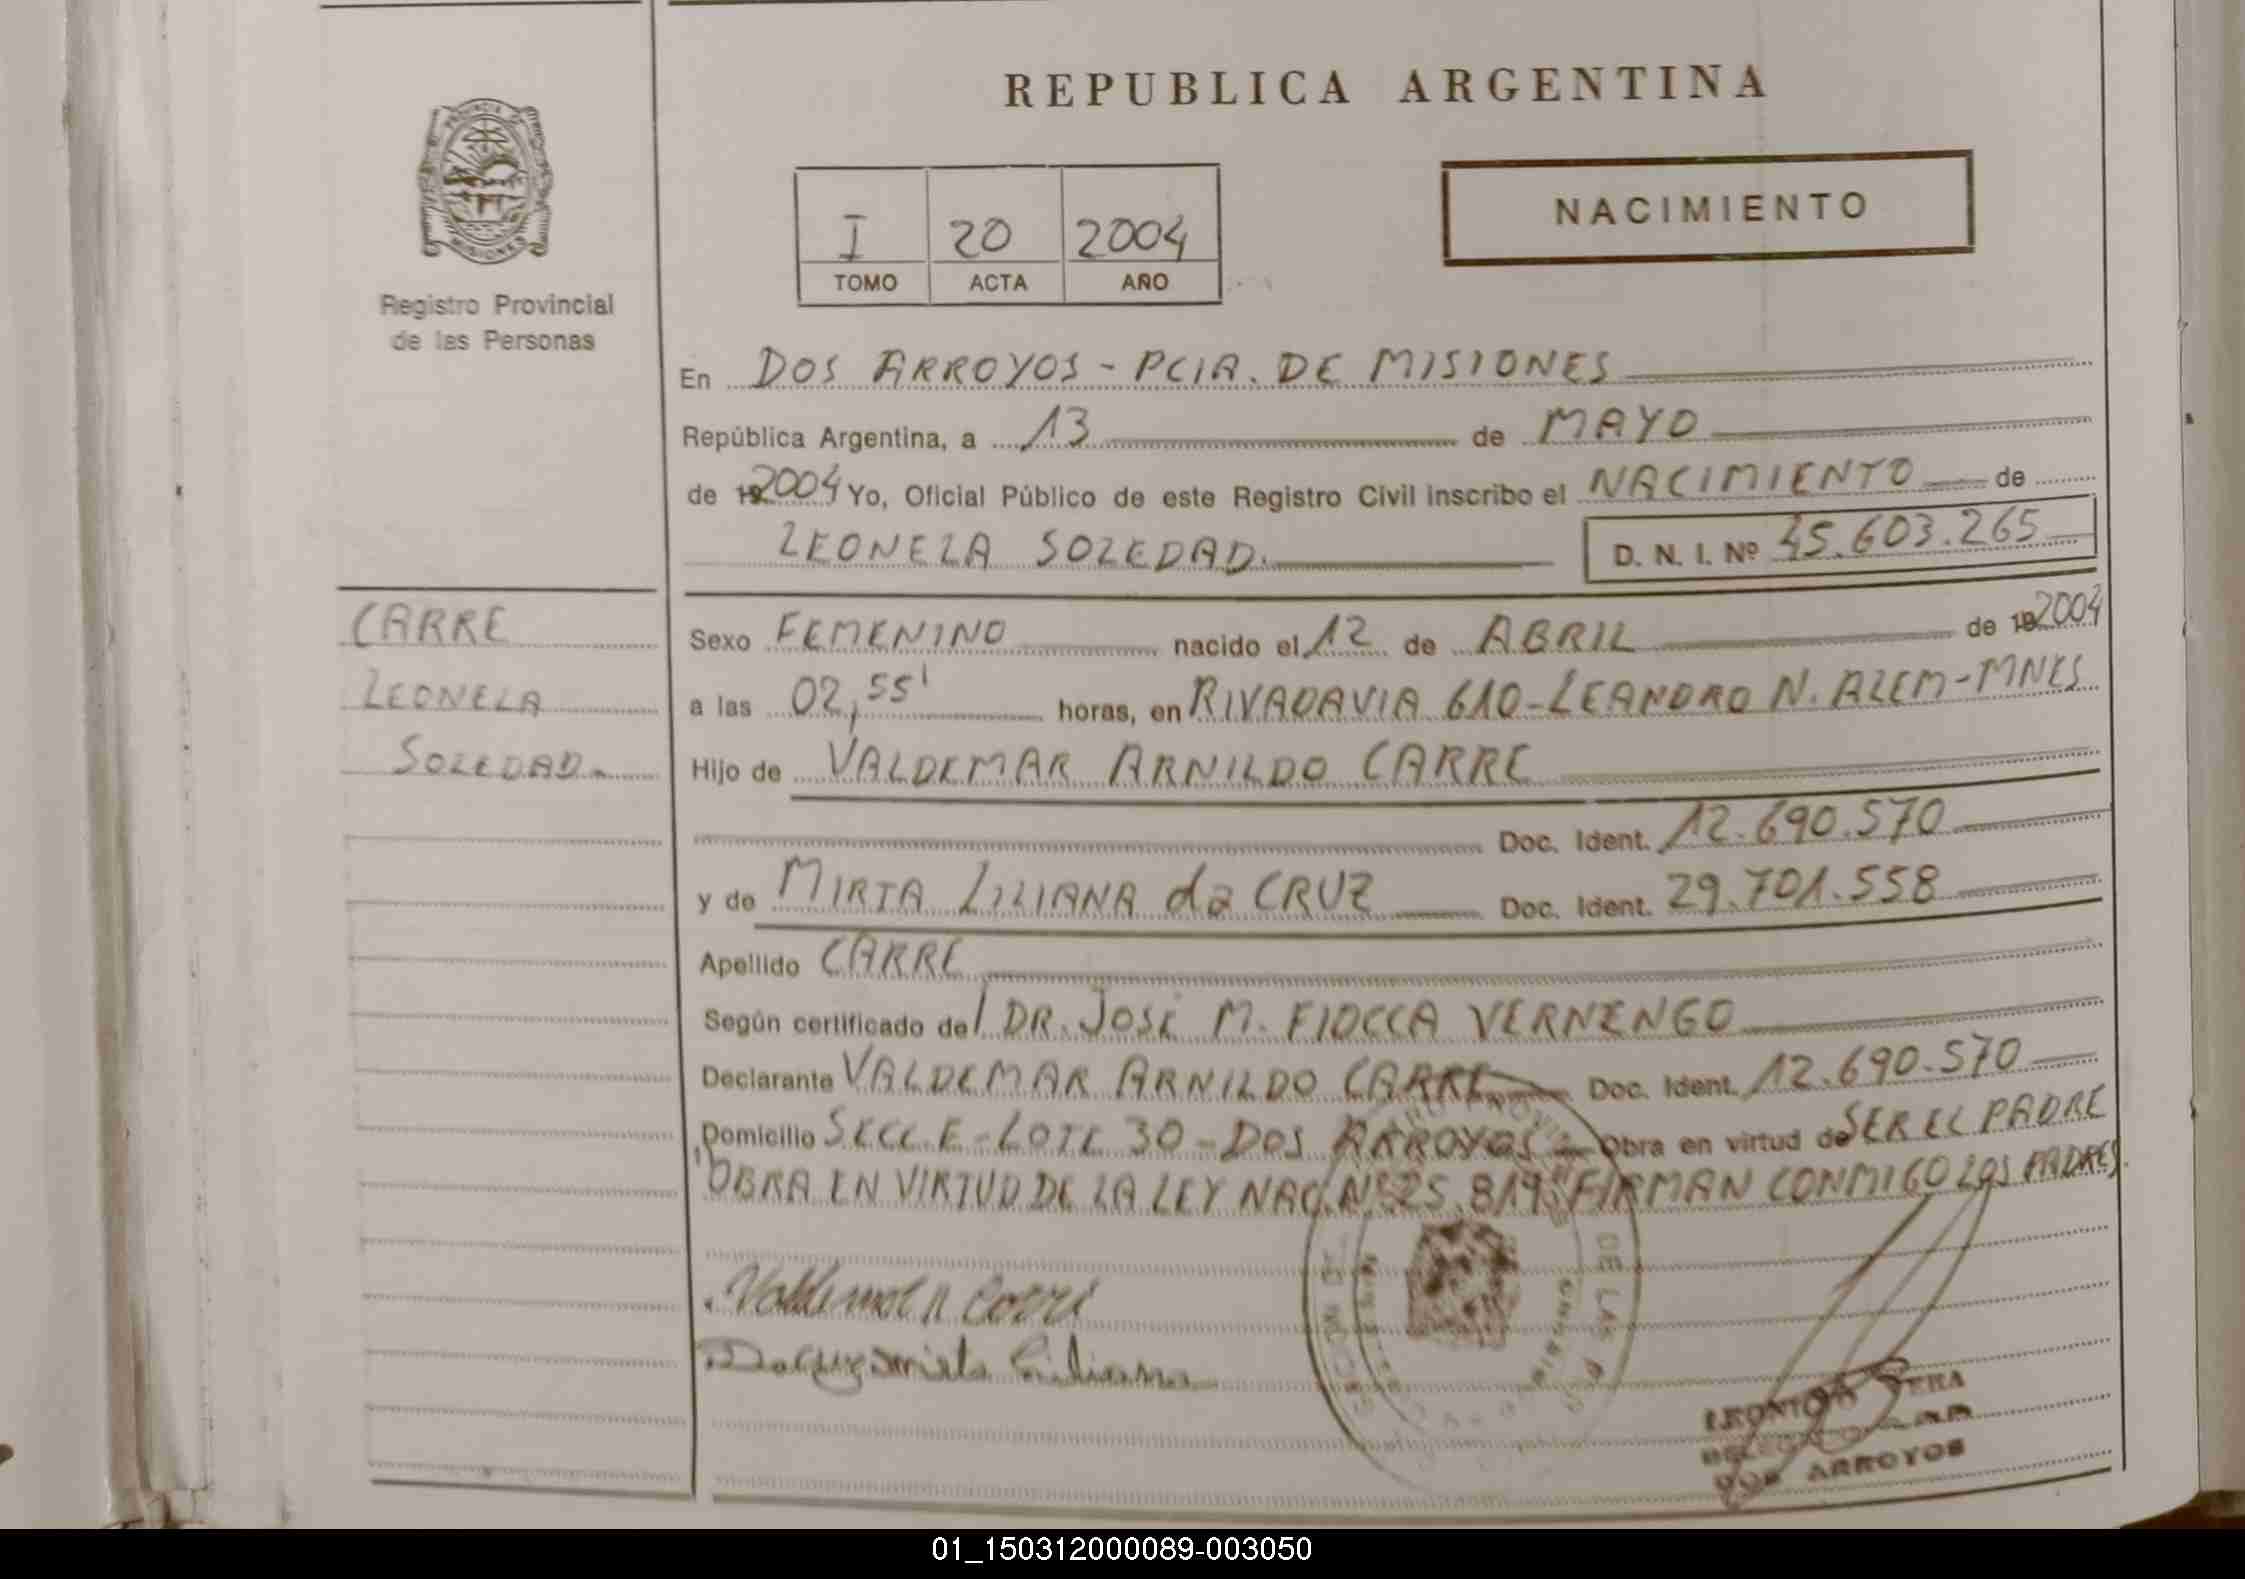 REPUBLICA ARGENTINA
PROVINCIA DE MISIONES
Registro Provincial
de las Personas
I 20 2004
TOMO ACTA AÑO
NACIMIENTO
En DOS ARROYOS - PCIA. DE MISIONES
República Argentina, a 13 de MAYO
de 192004 Yo, Oficial Público de este Registro Civil inscribo el NACIMIENTO de
LEONELA SOLEDAD. D. N. I. Nº 45.603.265
CARRE
LEONELA
SOLEDAD.
Sexo FEMENINO nacido el 12 de ABRIL de 192004
a las 02,55' horas, en RIVADAVIA 610-LEANDRO N. ALEM-MNES
Hijo de VALDEMAR ARNILDO CARRE
Doc. Ident. 12.690.570
y de MIRTA LILIANA da CRUZ Doc. Ident. 29.701.558
Apellido CARRE
Según certificado del DR. JOSE M. FIOCCA VERNENGO
Declarante VALDEMAR ARNILDO CARRE Doc. Ident. 12.690.570
Domicilio SECC. E - LOTE 30 - DOS ARROYOS Obra en virtud de SER EL PADRE
OBRA EN VIRTUD DE LA LEY NAC. Nº 25.819 FIRMAN CONMIGO LOS PADRES.
DE LAS
DOS ARROYOS
01_150312000089-003050